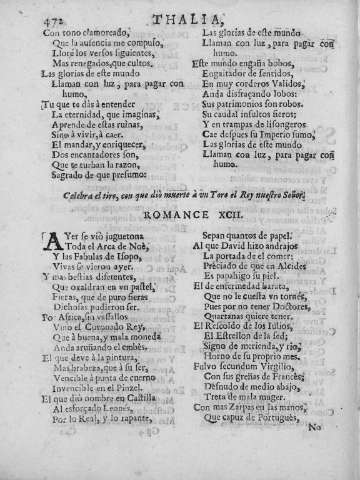 472 THALIA,
Con tono clamoreado,
Que la ausencia me compuso,
Lloré los versos siguientes,
Mas renegados, que cultos.
Las glorias de este mundo
Llaman con luz, para pagar con
humo.
Tu que te dàs à entender
La eternidad, que imaginas,
Aprende de estas ruinas,
Sino à vivir, à caer.
El mandar, y enriquecer,
Dos encantadores son,
Que te turban la razon,
Sagrado de que presumo:
Las glorias de este mundo
Llaman con luz, para pagar con
humo.
Este mundo engaña bobos,
Engaitador de sentidos,
En muy corderos Validos,
Anda disfraçando lobos:
Sus patrimonios son robos.
Su caudal insultos fieros;
Y en trampas de lisongeros
Cae despues su Imperio sumo,
Las glorias de este mundo
Llaman con luz, para pagar con
humo.
Celebra el tiro, con que diò muerte à vn Toro el Rey nuestro Señor.
ROMANCE XCII.
AYer se viò juguetona
Toda el Arca de Noè,
Y las Fabulas de Isopo,
Vivas se vieron ayer.
Y mas bestias diferentes,
Que oxaldran en vn pastel,
Fieras, que de puro fieras
Dichosas pudieron ser.
Vino el Coronado Rey,
Que à buena, y mala moneda
Anda arañando el embès.
El que deve à la pintura,
Mas braveza, que à su ser,
Vencible à punta de cuerno
Invencible en el Pinzel.
El que diò nombre en Castilla
Al esforçado Leonès,
Por lo Real, y lo rapante,
Sepan quantos de papel.
Al que David hizo andrajos
La portada de el comer;
Preciado de que en Alcides
Es papahigo su piel.
El de enfermedad barata,
Que no le cuesta vn tornès,
Pues por no tener Doctores,
Quartanas quiere tener.
El Rescoldo de los Iulios,
El Estrellon de la sed;
Signo de merienda, y rio,
Horno de su proprio mes.
Fulvo secundum Virgilio,
Con sus greñas de Francès;
Desnudo de medio abajo,
Treta de mala muger.
Con mas Zarpas en las manos,
Que capuz de Portuguès,
No